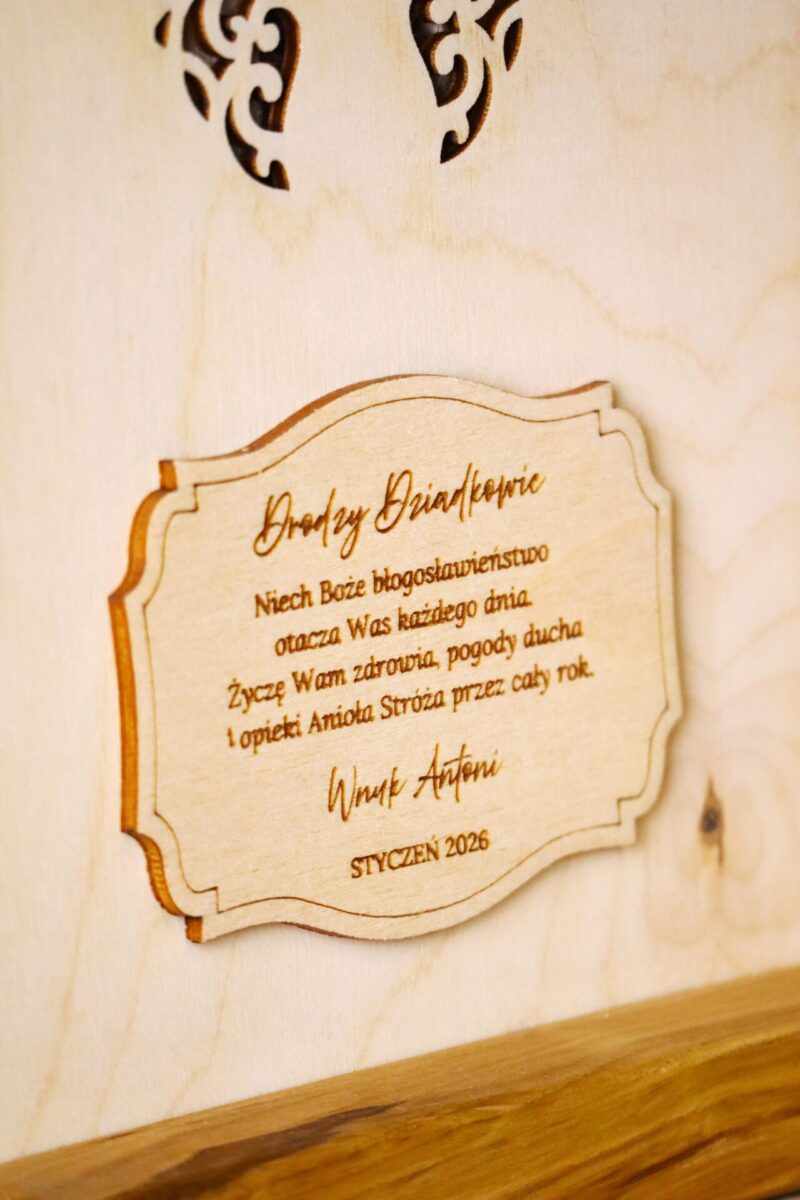 Drodzy Dziadkowie
Niech Boże błogosławieństwo
otacza Was każdego dnia.
Życzę Wam zdrowia, pogody ducha
i opieki Anioła Stróża przez cały rok.
Wnuk Antoni
STYCZEŃ 2026